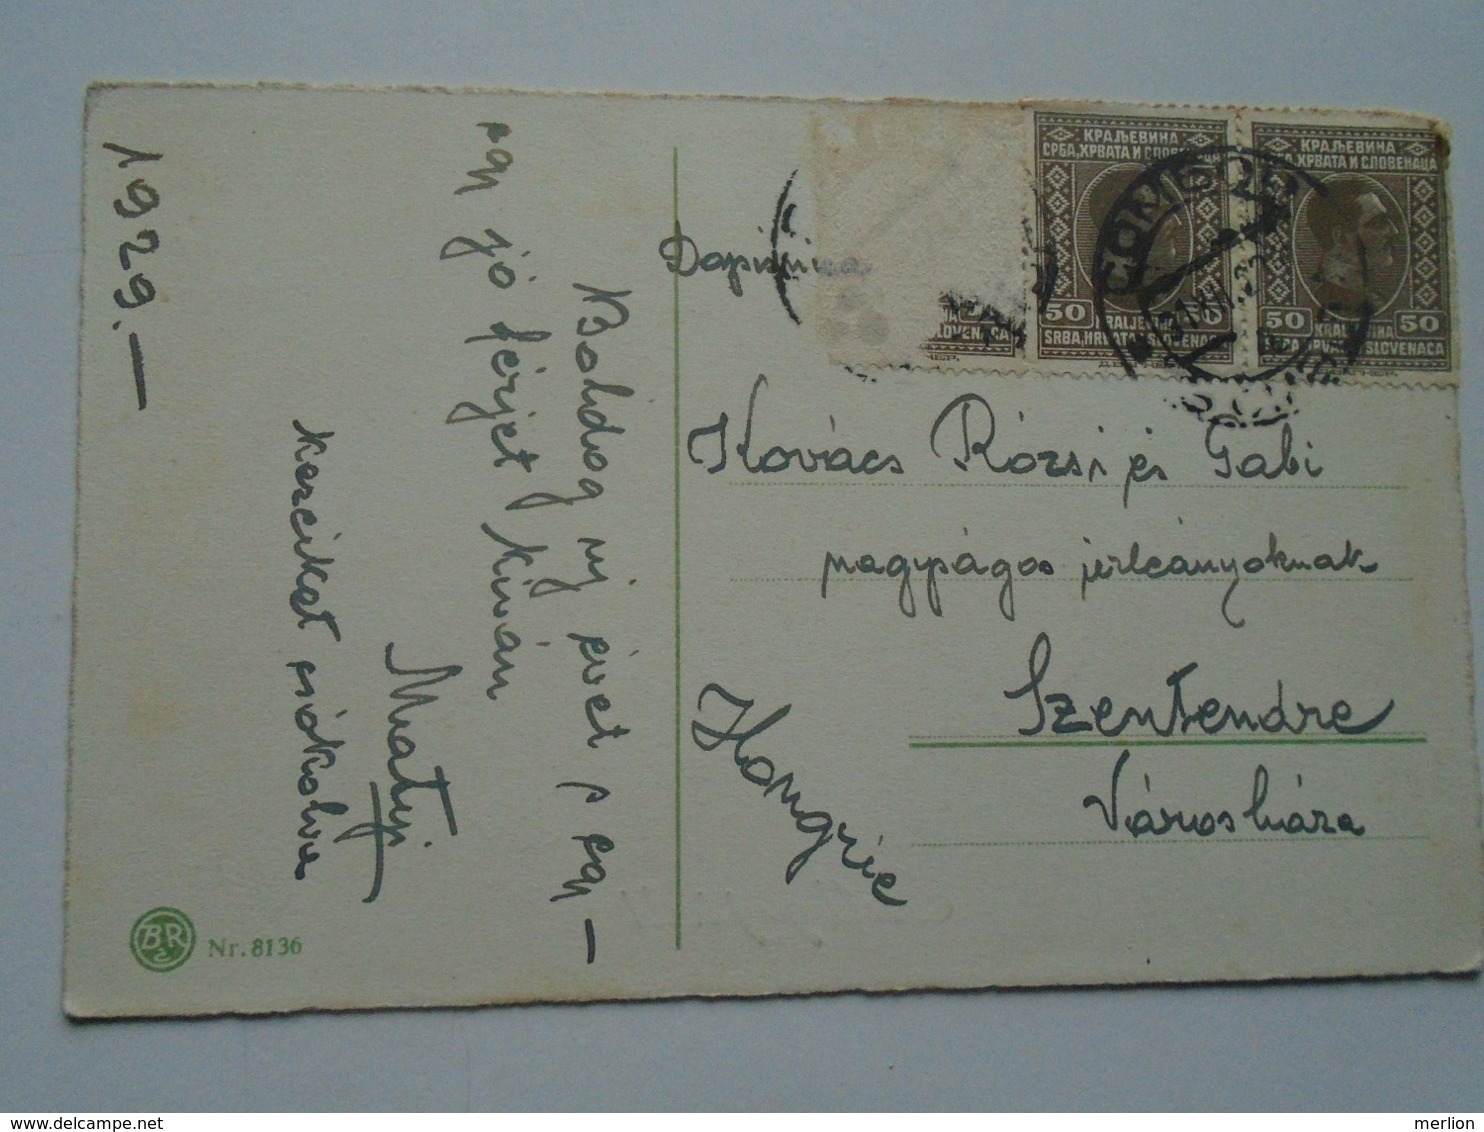 1929.—
Boldog uj évet s egy—
egy jó férjet kíván
Matyi
kezeiket csókolva
BR
Nr. 8136
Dopisnica
КРАЉЕВИНА
СРБА, ХРВАТА И СЛОВЕНАЦА
50 50
KRALJEVINA
SRBA, HRVATA I SLOVENACA
КРАЉЕВИНА
СРБА, ХРВАТА И СЛОВЕНАЦА
50 50
KRALJEVINA
SRBA, HRVATA I SLOVENACA
SLOVENACA
СОМБОР
31.XII.
Kovács Rózsi és Gabi
nagyságos úrleányoknak
Szentendre
Városháza
Hongrie
merlion